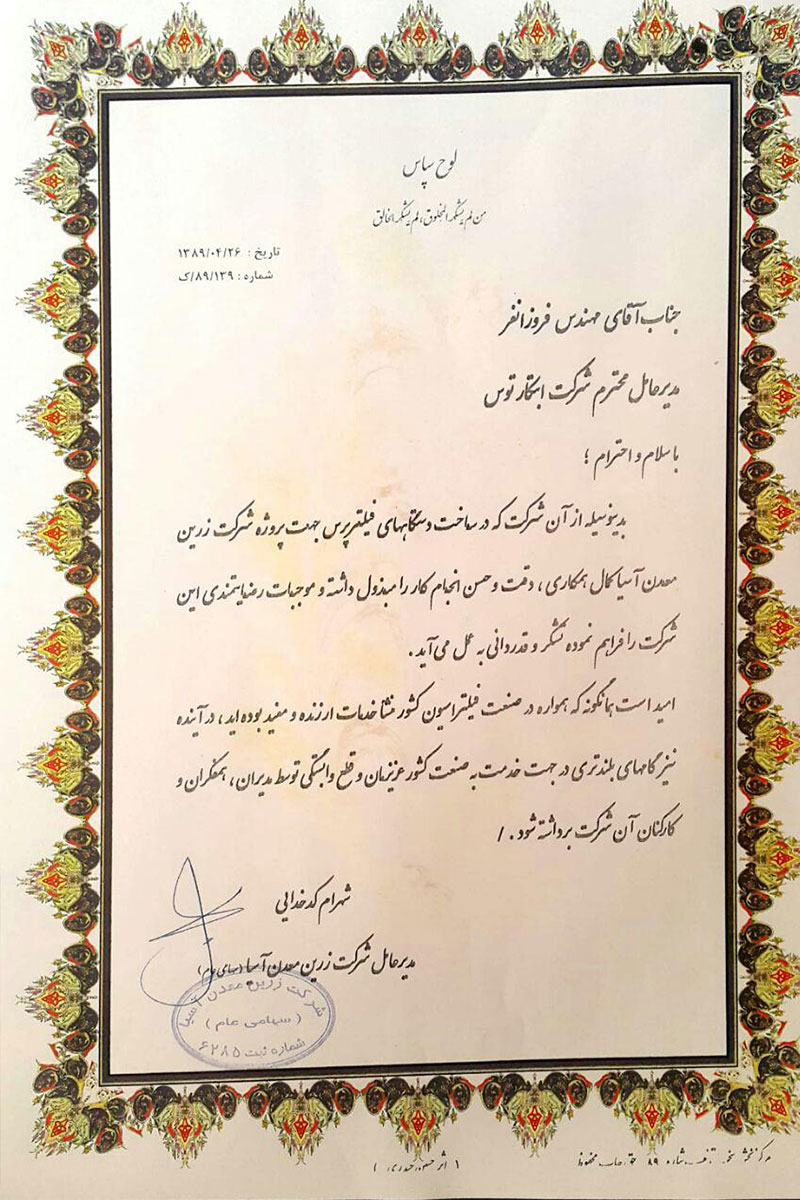 لوح سپاس
من لم یشکر المخلوق، لم یشکر الخالق
تاریخ : ۱۳۸۹/۰۴/۲۶
شماره : ۸۹/۱۳۹/ک
جناب آقای مهندس فروزانفر
مدیرعامل محترم شرکت ابتکار توس
با سلام و احترام ؛
بدینوسیله از آن شرکت که در ساخت دستگاههای فیلترپرس جهت پروژه شرکت زرین
معدن آسیا کمال همکاری ، دقت و حسن انجام کار را مبذول داشته و موجبات رضایتمندی این
شرکت را فراهم نموده تشکر و قدردانی به عمل می آید .
امید است همانگونه که همواره در صنعت فیلتراسیون کشور منشا خدمات ارزنده و مفید بوده اید ، در آینده
نیز گامهای بلندتری در جهت خدمت به صنعت کشور عزیزمان و قطع وابستگی توسط مدیران ، همفکران و
کارکنان آن شرکت برداشته شود . /
شهرام کدخدایی
مدیرعامل شرکت زرین معدن آسیا (سهامی عام)
شرکت زرین معدن آسیا
( سهامی عام )
شماره ثبت ۶۲۸۵
شماره ۸۹ محفوظ